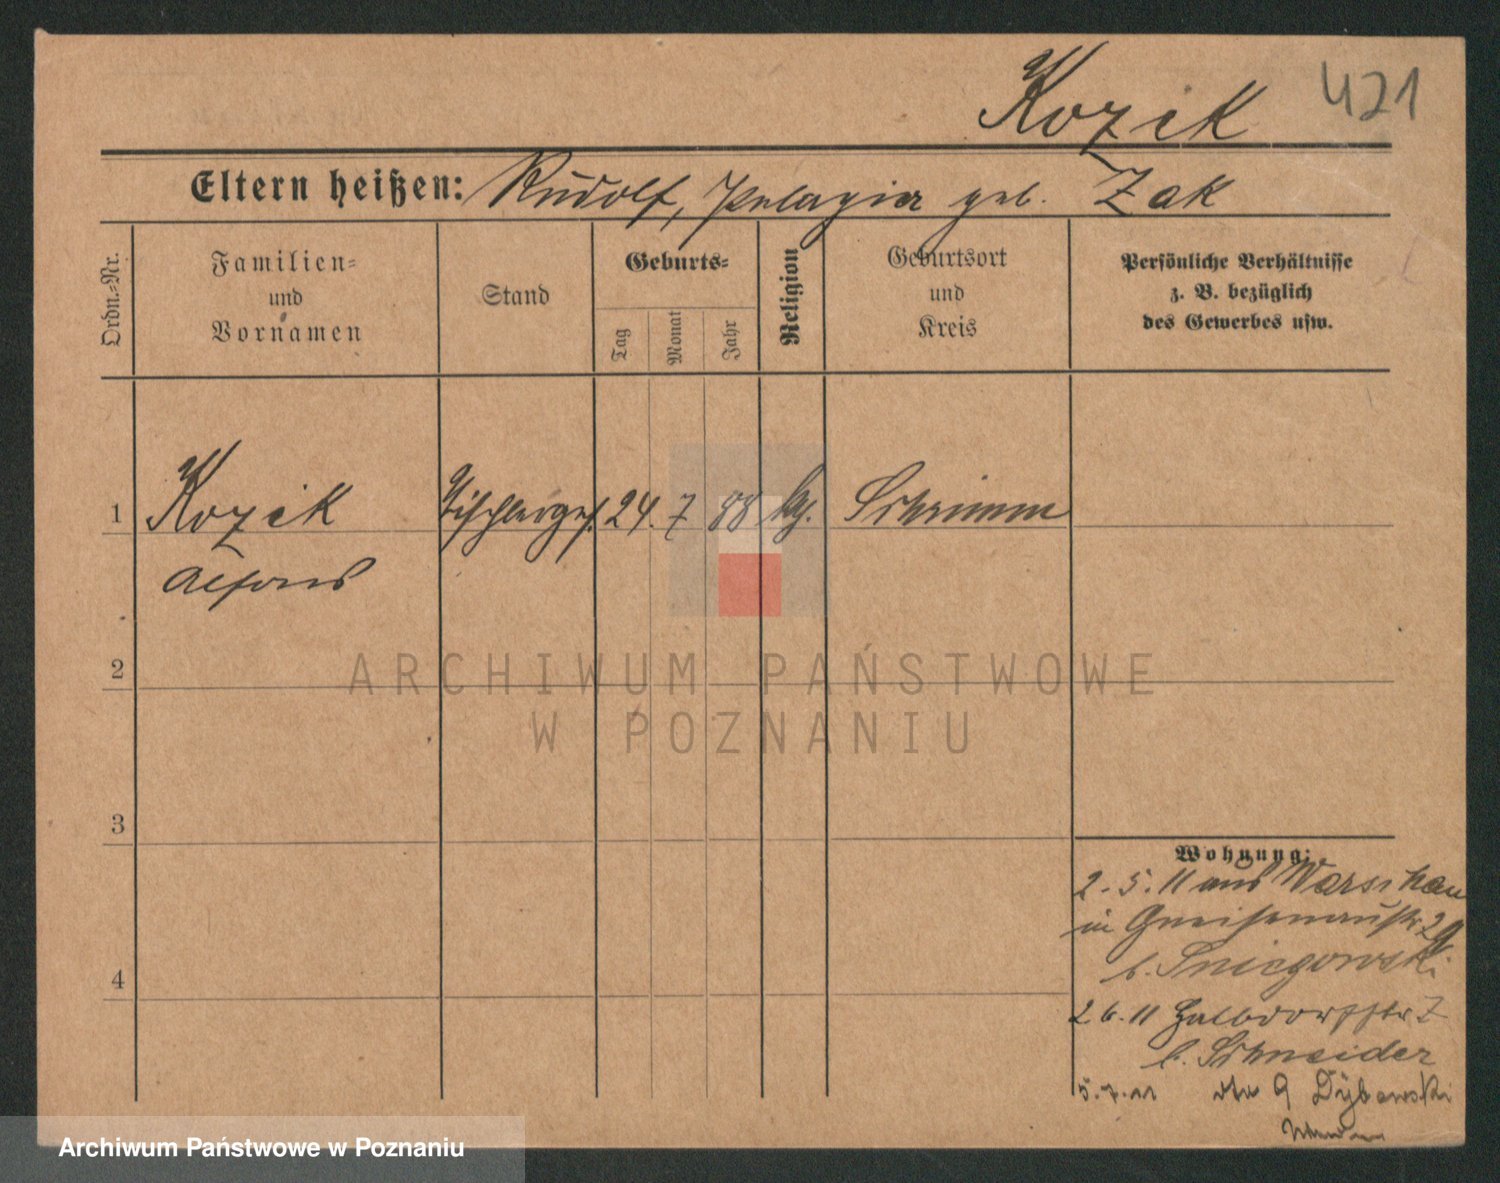 Kozik 421
Eltern heißen: Rudolf, Pelagia geb. Zak
Ordn.=Nr.
Familien=
und
Vornamen
Stand
Geburts=
Tag
Monat
Jahr
Religion
Geburtsort
und
Kreis
Persönliche Verhältnisse
z. B. bezüglich
des Gewerbes usw.
1 Kozik Tischlerges. 24. 7 88 kth. Schrimm
Alfons
2
3
4
ARCHIWUM PAŃSTWOWE
W POZNANIU
Wohnung:
2. 5. 11 aus Warschau
in Gneisenaustr 29
b. Sniegowski
2 6. 11 Halbdorfstr 7
b. Schneider
5. 7. 11 dto 9 Dÿbowski
Archiwum Państwowe w Poznaniu